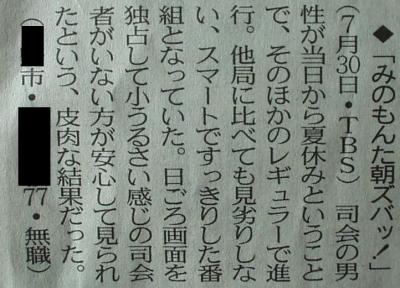 ◆「みのもんた朝ズバッ！」
（７月30日・ＴＢＳ）　司会の男
性が当日から夏休みということ
で、そのほかのレギュラーで進
行。他局に比べても見劣りしな
い、スマートですっきりした番
組となっていた。日ごろ画面を
独占して小うるさい感じの司会
者がいない方が安心して見られ
たという、皮肉な結果だった。
（市・77・無職）